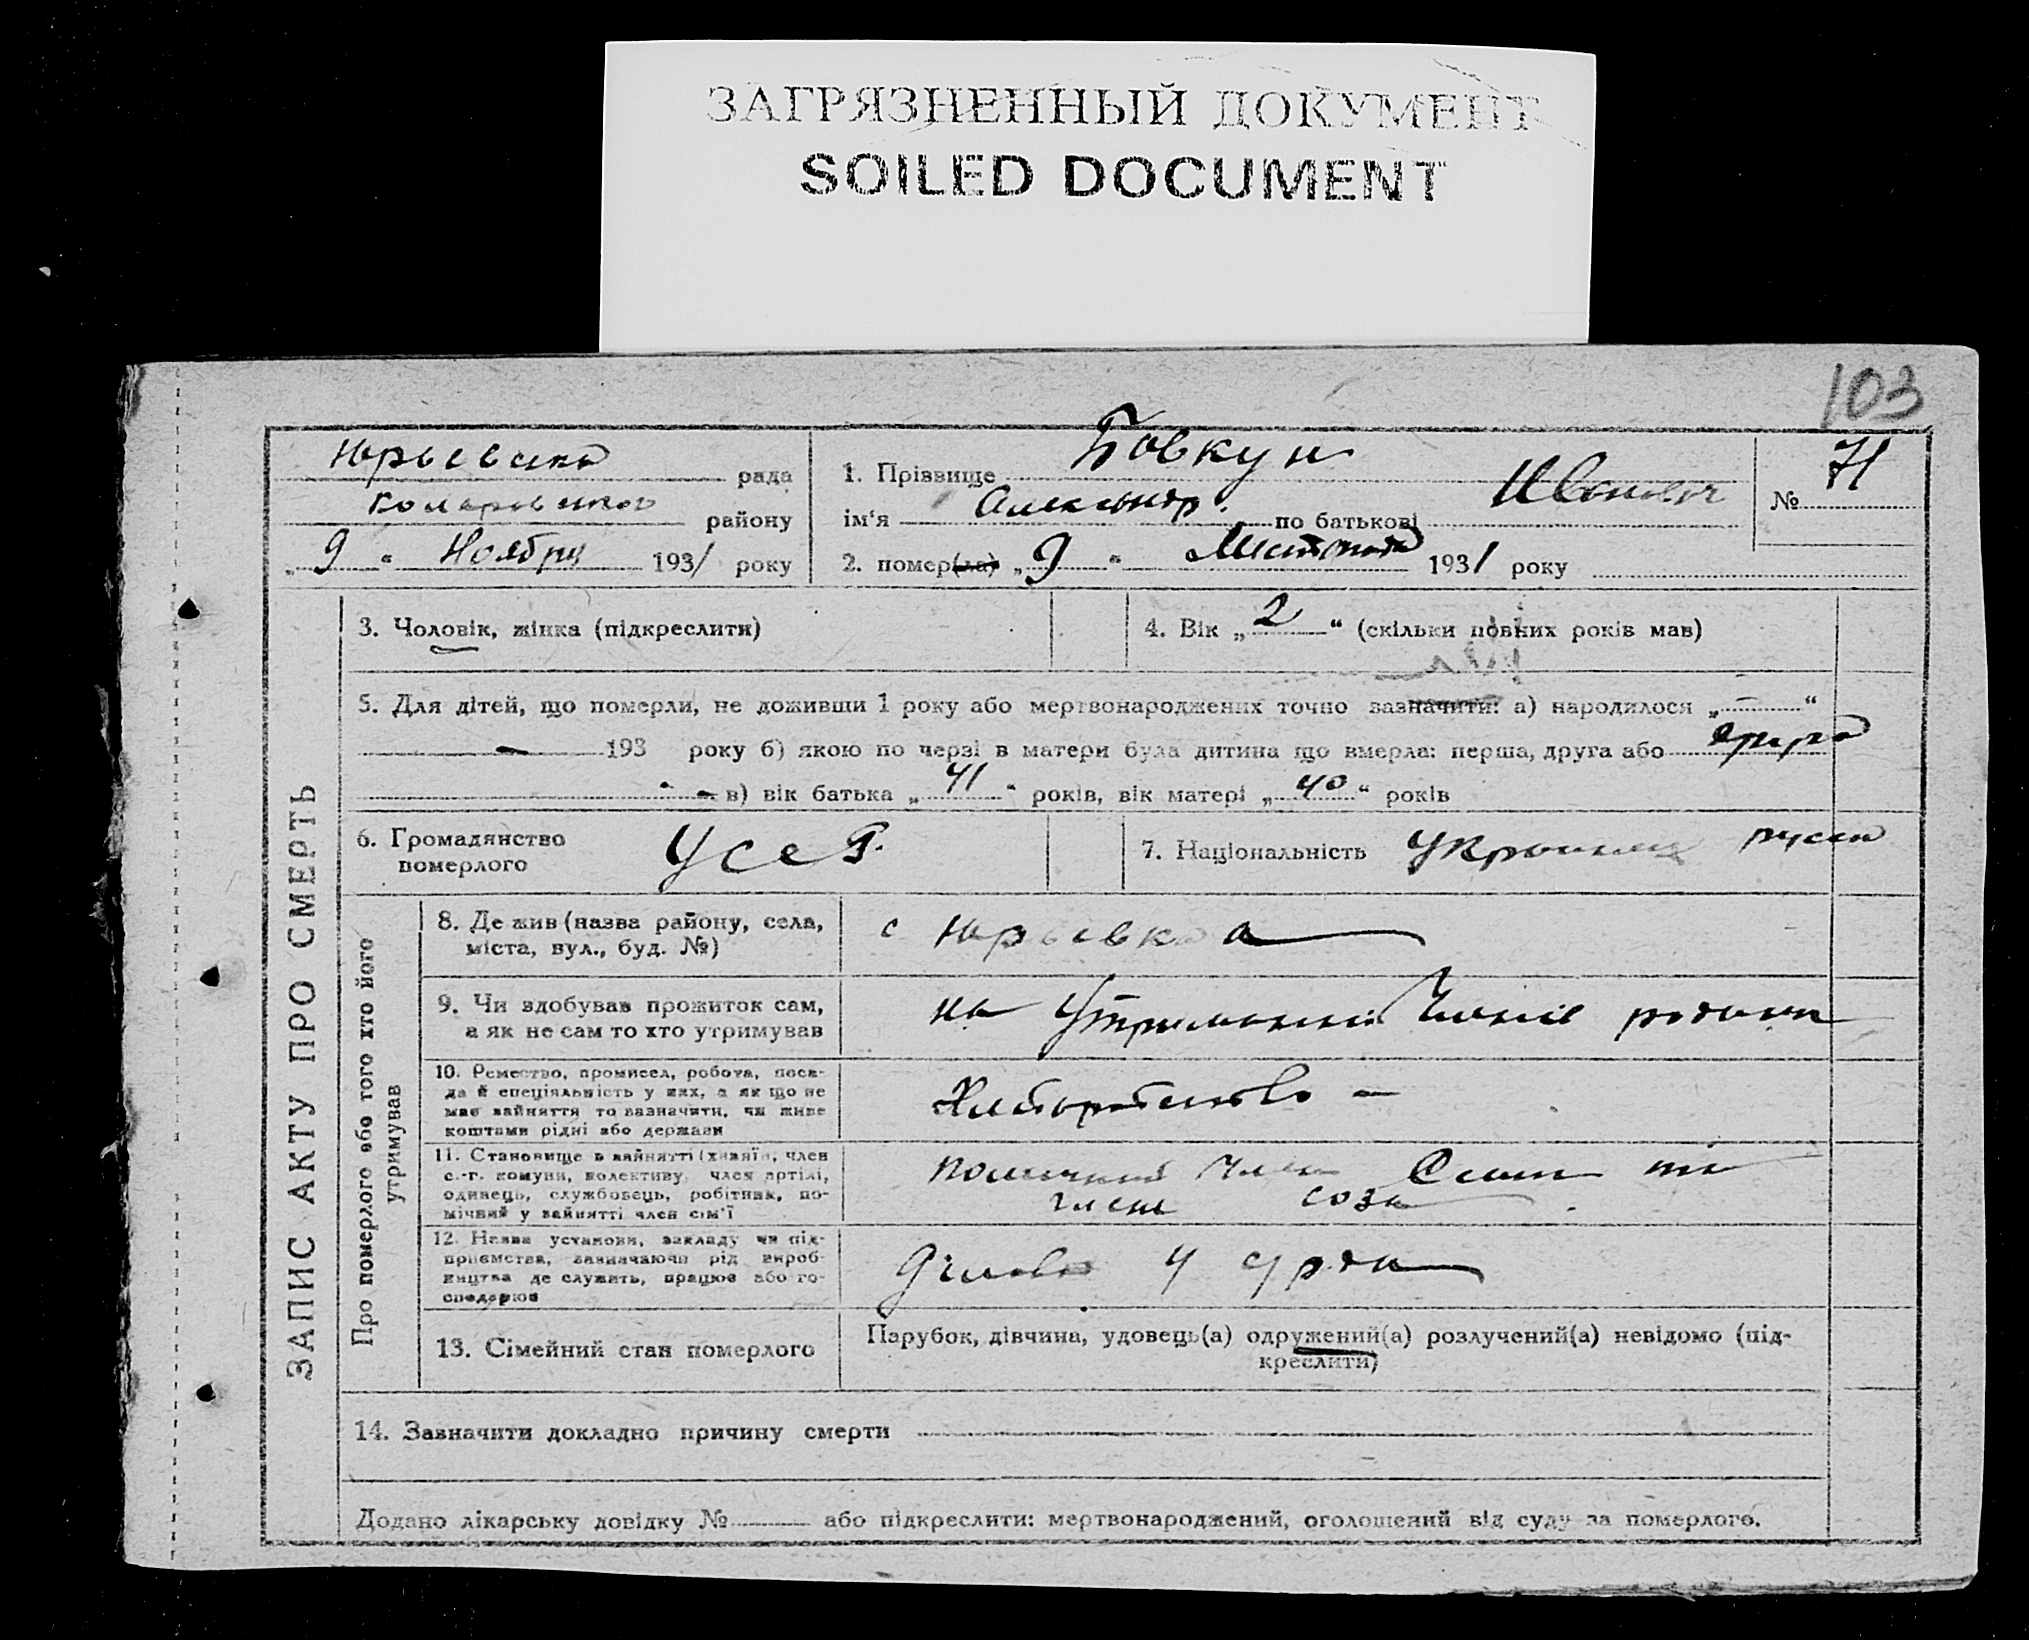 ЗАГРЯЗНЕННЫЙ ДОКУМЕНТ
SOILED DOCUMENT
103
рада
району
„ 9 “ Ноября 1931 року
1. Прізвище Бовкун
ім'я Александр по батькові Иванович
2. помер(ла) „ 9 “ Листопада 1931 року
№ 71
ЗАПИС АКТУ ПРО СМЕРТЬ
3. Чоловік, жінка (підкреслити)
4. Вік „ 2 “ (скільки повних років мав)
5. Для дітей, що померли, не доживши 1 року або мертвонароджених точно зазначити: а) народилося „ — “
— 193 року б) якою по черзі в матери була дитина що вмерла: перша, друга або
в) вік батька „ 41 “ років, вік матері „ 40 “ років
6. Громадянство
померлого
7. Національність
Про померлого або того хто його
утримував
8. Де жив (назва району, села,
міста, вул., буд. №)
с Юрьевка
9. Чи здобував прожиток сам,
а як не сам то хто утримував
на Утриманні Членів родини
10. Ремество, промисел, робота, поса-
да й спеціяльність у них, а як що не
має зайняття то зазначити, чи живе
коштами рідні або держави
Хліборобство —
11. Становище в зайнятті (хазяїн, член
с.-г. комуни, колективу, член артілі,
одинець, службовець, робітник, по-
мічний у зайнятті член сім'ї
помічний Член
соза
12. Назва установи, закладу чи під-
приємства, зазначаючи рід вироб-
ництва де служить, працює або го-
сподарює
13. Сімейний стан померлого
Парубок, дівчина, удовець(а) одружений(а) розлучений(а) невідомо (під-
креслити)
14. Зазначити докладно причину смерти
Додано лікарську довідку № або підкреслити: мертвонароджений, оголошений від суду за померлого.